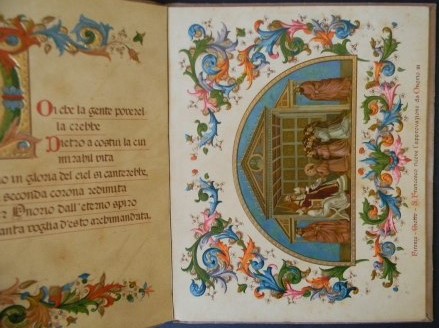 Oi che la gente poverel
la crebbe
Dietro a costui la cui
mirabil vita
o in gloria del ciel si canterebbe,
seconda corona redimita
r Onorio dall'eterno spiro
anta voglia d'esto archimandrita,
S. Francesco riceve l'approvazione da Onorio III